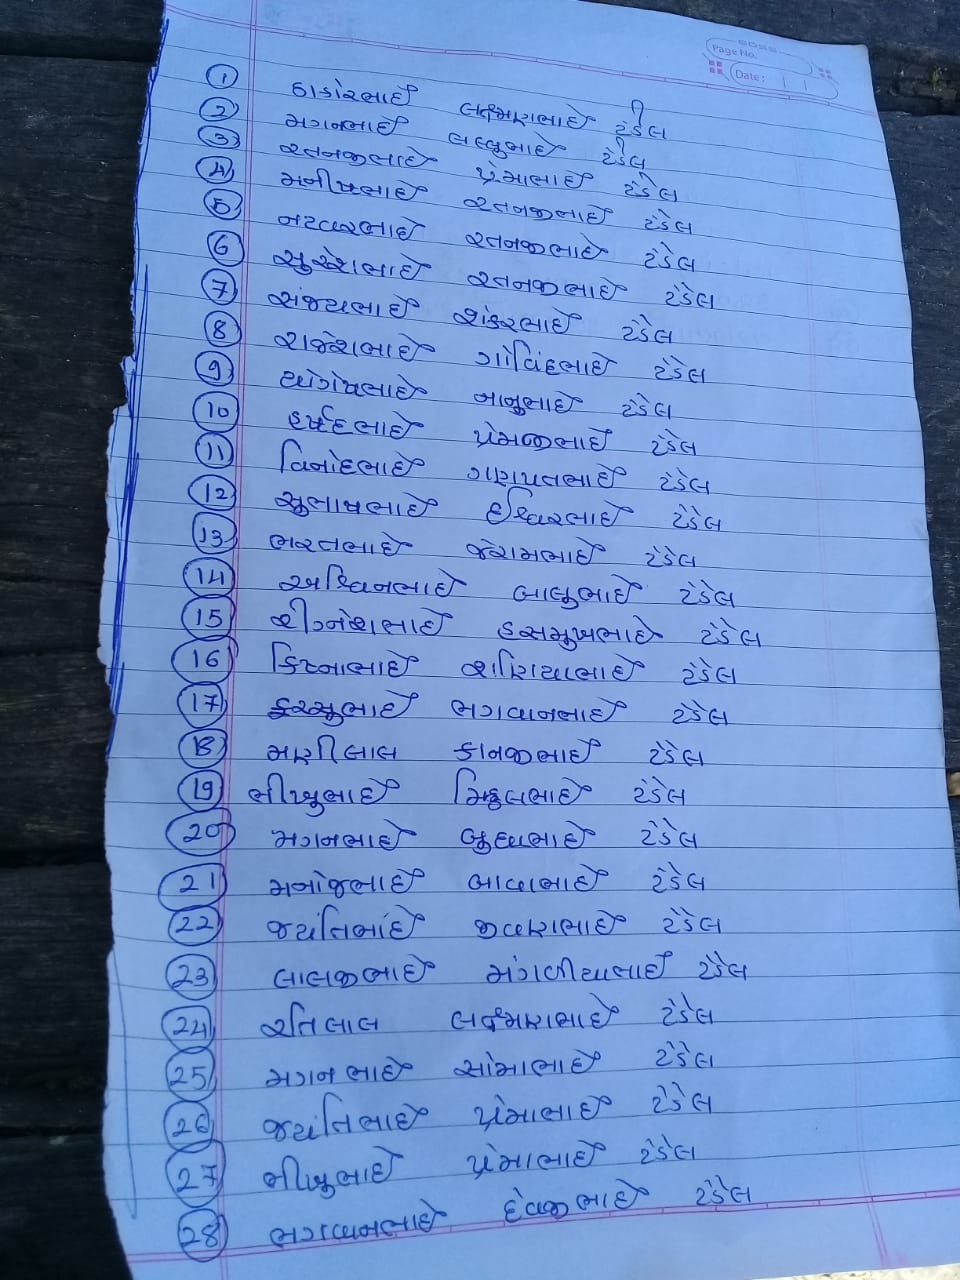 Page No.
Date :
1 ઠાકોરભાઈ લક્ષ્મણભાઈ ટંડેલ
2 મગનભાઈ લલ્લુભાઈ ટંડેલ
3 રતનજીભાઈ પ્રેમાભાઈ ટંડેલ
4 મનીષભાઈ રતનજીભાઈ ટંડેલ
5 નટવરભાઈ રતનજીભાઈ ટંડેલ
6 સુરેશભાઈ રતનજીભાઈ ટંડેલ
7 સંજયભાઈ શંકરભાઈ ટંડેલ
8 રાજેશભાઈ ગોવિંદભાઈ ટંડેલ
9 યોગેષભાઈ બાબુભાઈ ટંડેલ
10 હર્ષદભાઈ પ્રેમજીભાઈ ટંડેલ
11 વિનોદભાઈ ગણપતભાઈ ટંડેલ
12 સુભાષભાઈ ઈશ્વરભાઈ ટંડેલ
13 ભરતભાઈ જેરામભાઈ ટંડેલ
14 અશ્વિનભાઈ બાબુભાઈ ટંડેલ
15 જીગ્નેશભાઈ હસમુખભાઈ ટંડેલ
16 કિશ્નાભાઈ ટંડેલ
17 ભગવાનભાઈ ટંડેલ
18 મણીલાલ કાનજીભાઈ ટંડેલ
19 ભીખુભાઈ વિઠ્ઠલભાઈ ટંડેલ
20 મગનભાઈ બુધ્યાભાઈ ટંડેલ
21 મનોજભાઈ બાવાભાઈ ટંડેલ
22 જયંતિભાઈ જીવણભાઈ ટંડેલ
23 લાલજીભાઈ મંગળીયાભાઈ ટંડેલ
24 રતિલાલ લક્ષ્મણભાઈ ટંડેલ
25 મગનભાઈ સોમાભાઈ ટંડેલ
26 જયંતિભાઈ પ્રેમાભાઈ ટંડેલ
27 ભીખુભાઈ પ્રેમાભાઈ ટંડેલ
28 ભગવાનભાઈ દેવજીભાઈ ટંડેલ